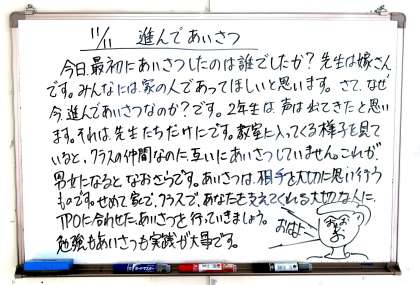 11/11 進んであいさつ
今日、最初にあいさつしたのは誰でしたか？先生は嫁さん
です。みんなには、家の人であってほしいと思います。さて、なぜ
今、進んであいさつなのか？です。2年生は、声は出てきたと思い
ます。それは、先生たちだけにです。教室に入ってくる様子を見て
いると、クラスの仲間なのに、互いにあいさつしていません。これが、
男女になると、なおさらです。あいさつは、相手を大切に思い行う
ものです。せめて家で、クラスで、あなたを支えてくれる大切な人に、
TPOに合わせた、あいさつを行っていきましょう。
勉強もあいさつも実践が大事です。
おはよー